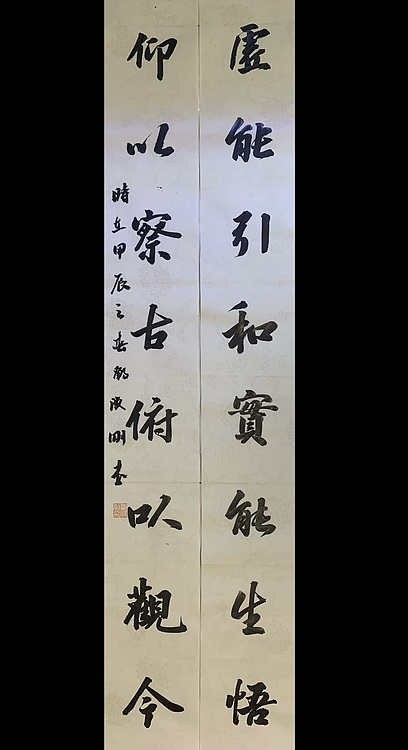 虛能引和實能生悟
仰以察古俯以觀今
時在甲辰之春
剛書